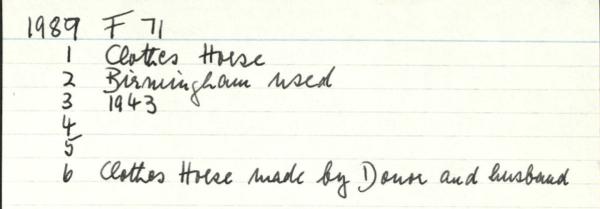 1989 F 71
1 Clothes Horse
2 Birmingham used
3 1943
4
5
6 Clothes Horse made by Donor and husband